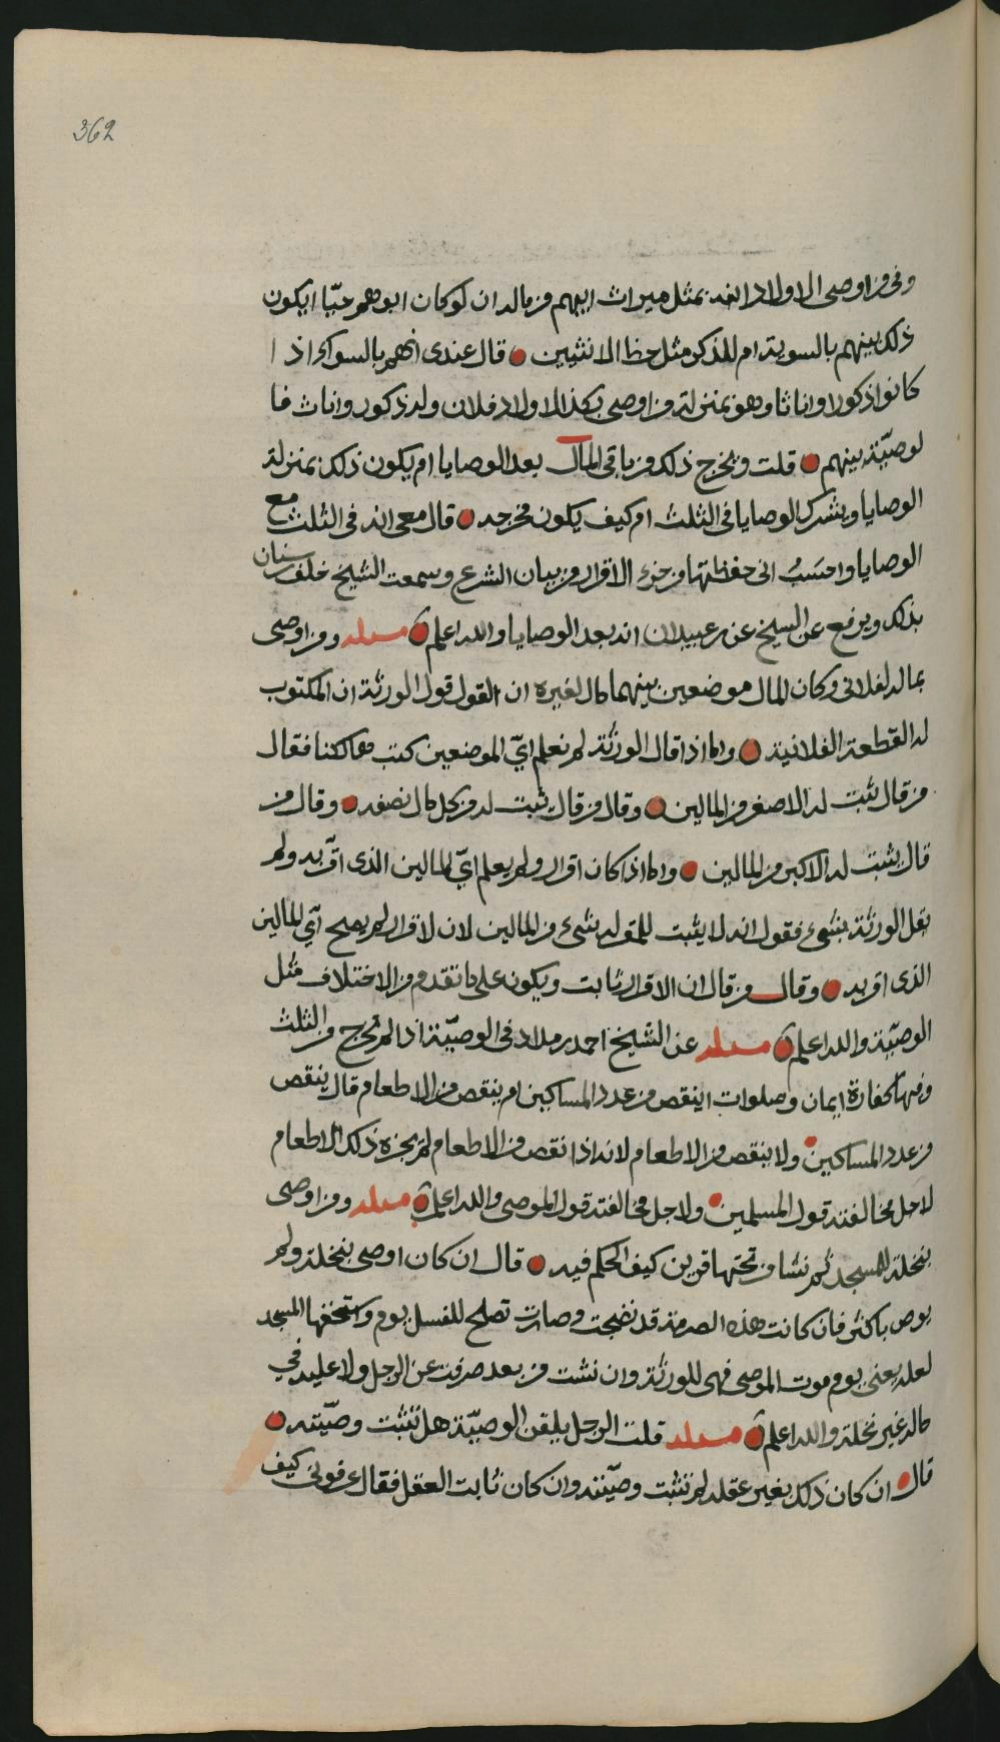 362
وفي من اوصى الاولاد ابنه بمثل ميراث ابيهم من مالد ان لو كان ابوهم حيّا ايكون
ذلك بينهم بالسوية ام للذكر مثل حظ الانثيين قال عندى انهم بالسواء اذا
كانوا ذكورا واناثا وهو بمنزلة من اوصى بكذا لاولاد فلان وله ذكور واناث فا
لوصيّة بينهم قلت ويخرج ذلك من باقي المال بعد الوصايا ام يكون ذلك بمنزلة
الوصايا ويشرك الوصايا في الثلث ام كيف يكون مخرجه قال معي انه في الثلث مع
الوصايا واحسب اني حفظتها من جزء الاقرار من بيان الشرع وسمعت الشيخ خلف بن سنان
بذلك ويرفع عن الشيخ عن بن عبيدان انه بعد الوصايا والله اعلم مسئلة ومن اوصى
بماله لفلاني وكان المال موضعين بينهما مال لغيره ان القول قول الورثة ان المكتوب
له القطعة الفلانية واما اذا قال الورثة لم نعلم ايّ الموضعين كتب هالكنا فقال
من قال يثبت له الاصغر من المالين وقال من قال يثبت له من كل مال نصفه وقال من
قال يثبت له الاكبر من المالين واما اذا كان اقرار ولم يعلم ايّ المالين الذى اقرّ به ولم
يقل الورثة بشيء فقول انه لا يثبت للمقر له شيء من المالين لان لاقرار لم يصح ايّ المالين
الذى اقر به وقال من قال ان الاقرار ثابت ويكون على ما تقدم من الاختلاف مثل
الوصيّة والله اعلم مسئلة عن الشيخ احمد بن مداد في الوصيّة اذا لم تخرج من الثلث
وفيها كفارة ايمان وصلوات اينقص من عدد المساكين ام ينقص من الاطعام قال ينقص
من عدد المساكين ولا ينقص من الاطعام لانه اذا نقص من الاطعام لم يجزه ذلك الاطعام
لاجل مخالفته قول المسلمين ولاجل مخالفته قول الموصي والله اعلم مسئلة ومن اوصى
بنخلة للمسجد ثم نشا من تحتها قرين كيف الحكم فيه قال ان كان اوصى بنخلة ولم
يوص باكثر فان كانت هذه الصرمة قد نضجت وصارت تصلح للفسل يوم واستحقها المسجد
لعله يعنى يوم موت الموصي فهى للورثة وان نشت من بعد صرفت عن الرجل ولا عليه في
ماله غير نخلة والله اعلم مسئلة قلت الرجل يلقن الوصيّة هل تثبت وصيّته
قال ان كان ذلك بغير عقله لم تثبت وصيّته وان كان ثابت العقل فقال عرفوني كيف